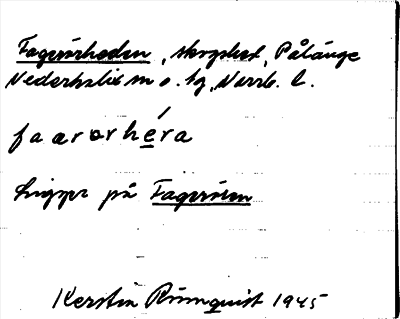 Fagerörheden, skogshed, Pålänge
Nederkalix sn o. tg, Norrb. l.
faarorhéra
Ligger på Fagerören
Kerstin Rönnquist 1945